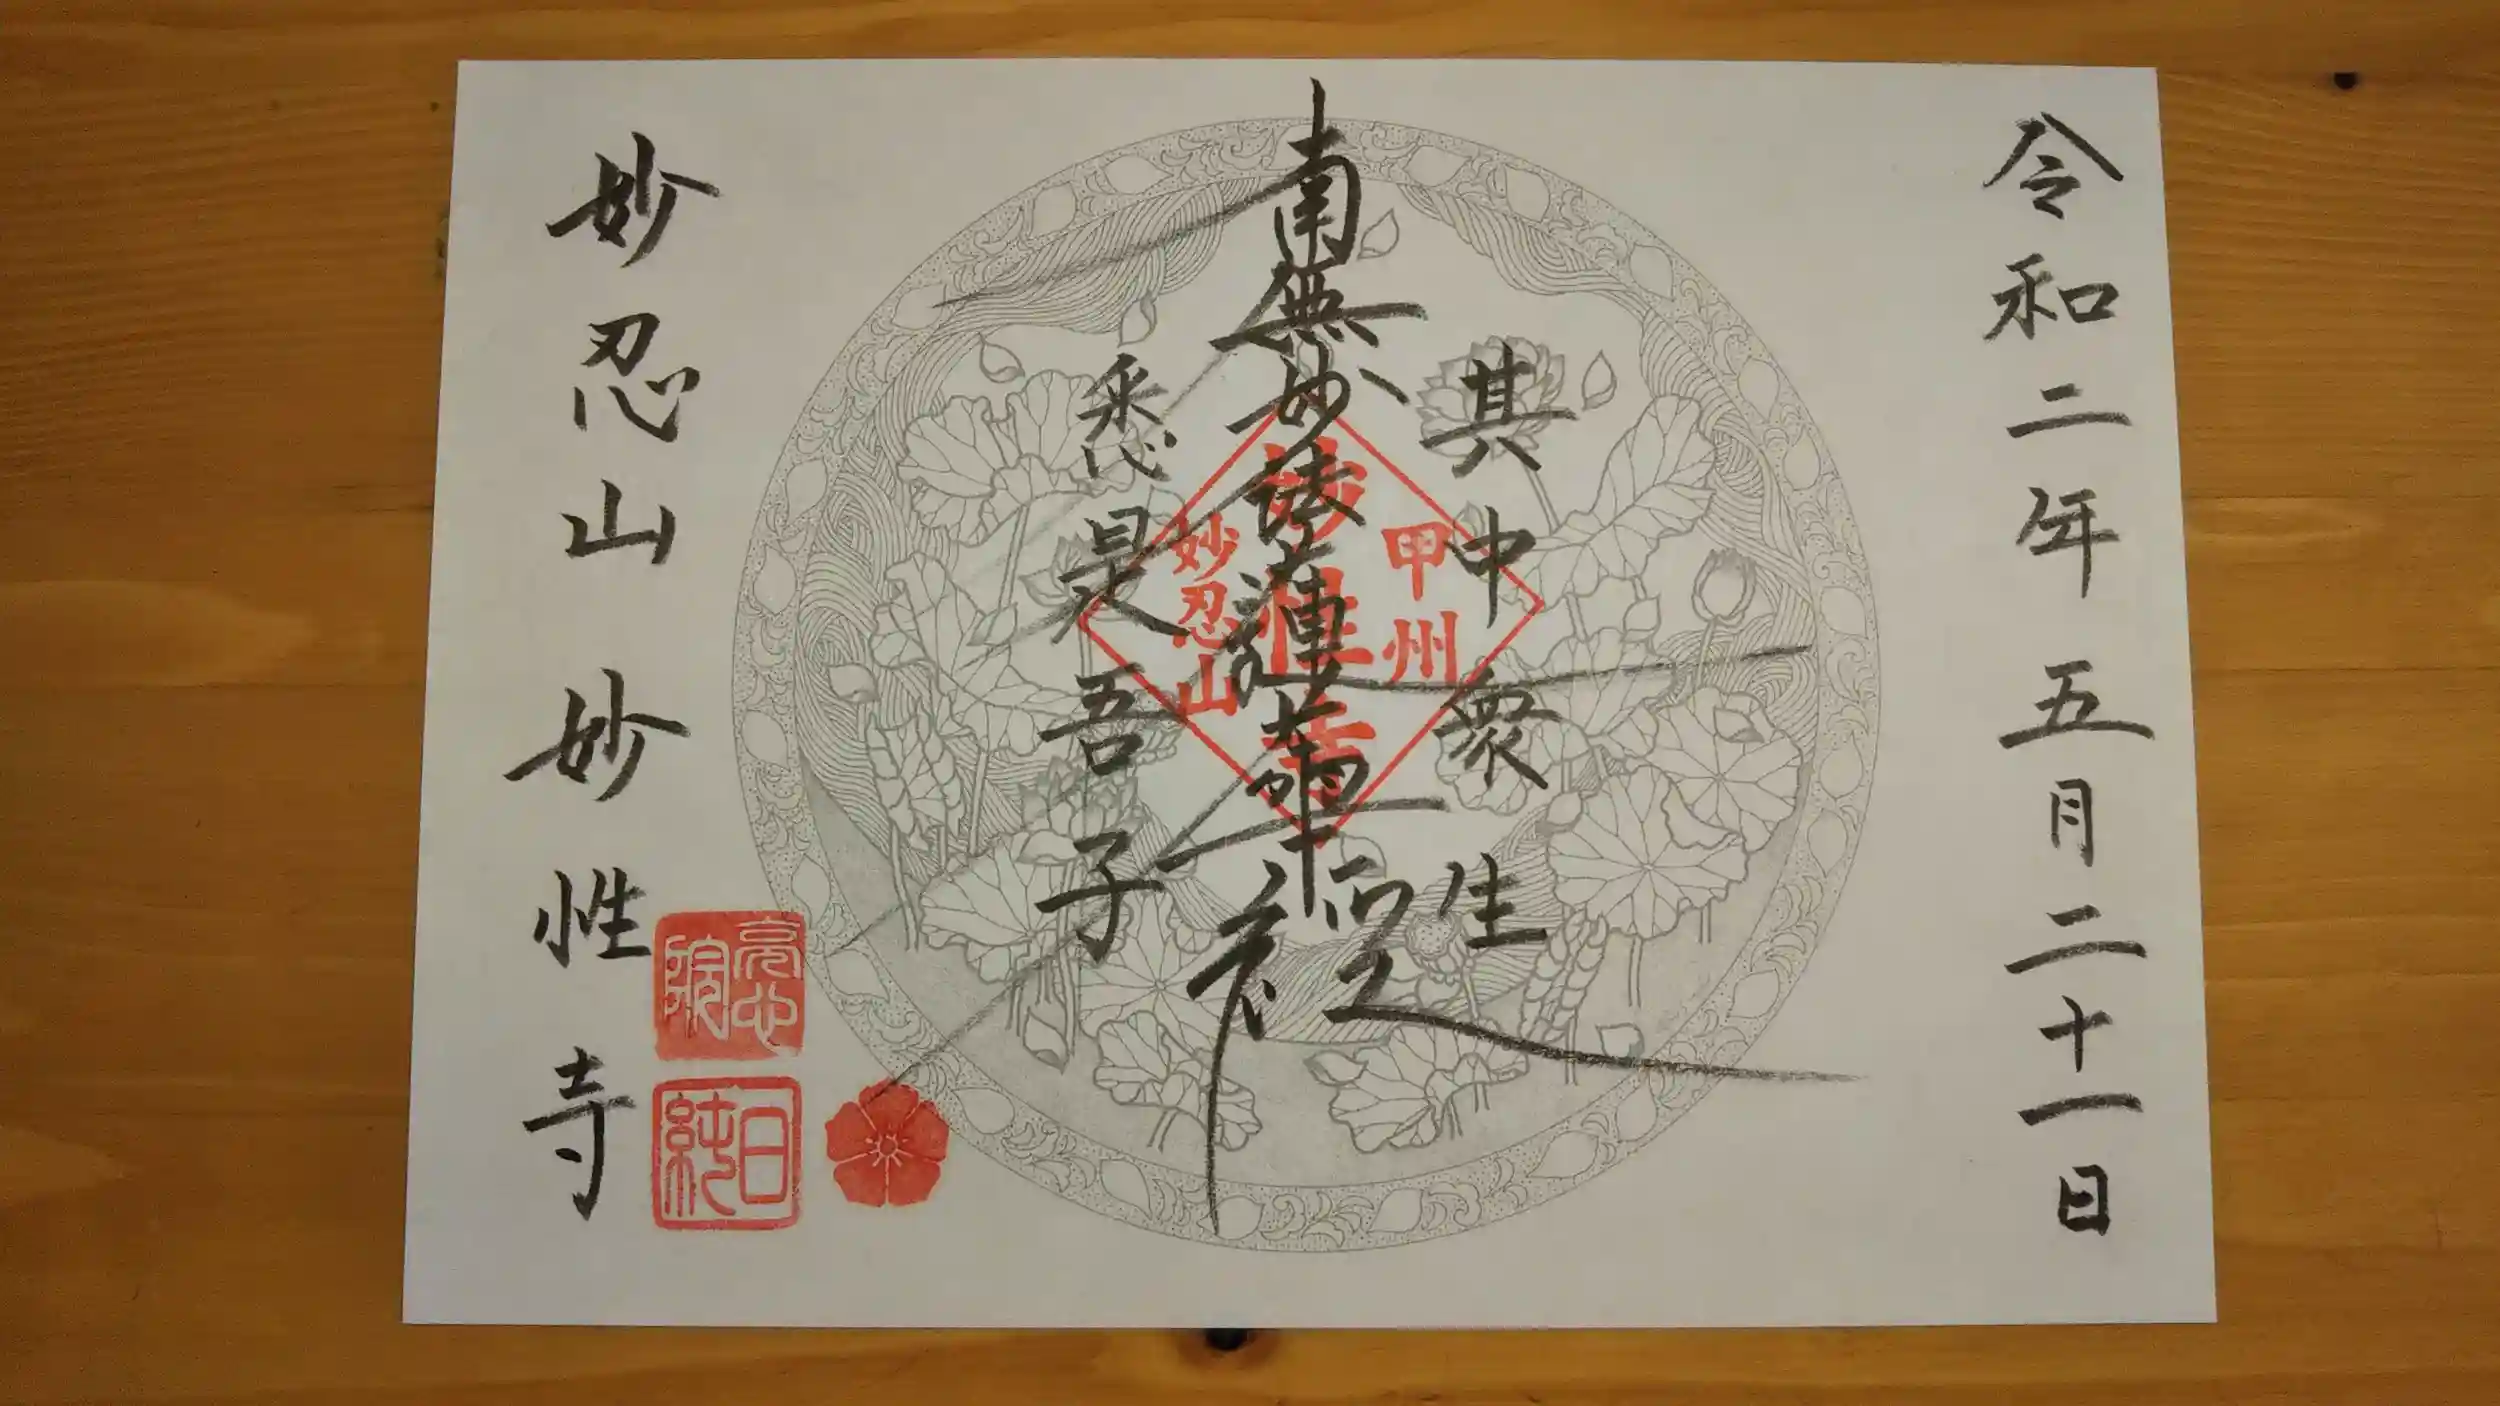 令和二年五月二十一日
其中衆生
南無妙法蓮華經
悉是吾子
甲州
妙性寺
妙忍山
妙忍山妙性寺
亮心院
日純